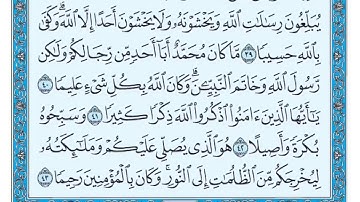 يُبَلِّغُونَ رِسَٰلَٰتِ ٱللَّهِ وَيَخْشَوْنَهُۥ وَلَا يَخْشَوْنَ أَحَدًا إِلَّا ٱللَّهَۗ وَكَفَىٰ
بِٱللَّهِ حَسِيبًا ٣٩ مَّا كَانَ مُحَمَّدٌ أَبَآ أَحَدٍ مِّن رِّجَالِكُمْ وَلَٰكِن
رَّسُولَ ٱللَّهِ وَخَاتَمَ ٱلنَّبِيِّـۧنَۗ وَكَانَ ٱللَّهُ بِكُلِّ شَىْءٍ عَلِيمًا ٤٠
يَٰٓأَيُّهَا ٱلَّذِينَ ءَامَنُوا۟ ٱذْكُرُوا۟ ٱللَّهَ ذِكْرًا كَثِيرًا ٤١ وَسَبِّحُوهُ
بُكْرَةً وَأَصِيلًا ٤٢ هُوَ ٱلَّذِى يُصَلِّى عَلَيْكُمْ وَمَلَٰٓئِكَتُهُۥ
لِيُخْرِجَكُم مِّنَ ٱلظُّلُمَٰتِ إِلَى ٱلنُّورِۚ وَكَانَ بِٱلْمُؤْمِنِينَ رَحِيمًا ٤٣